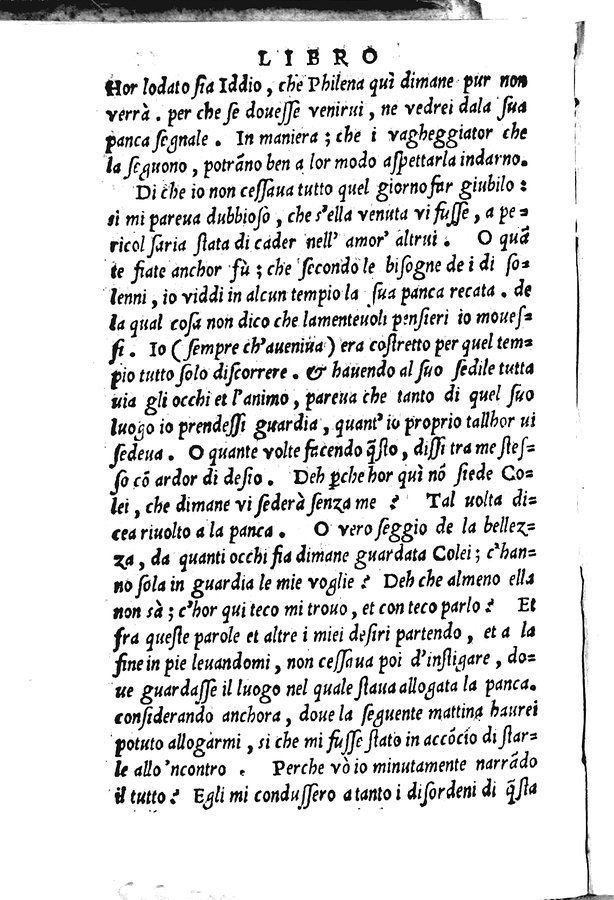 LIBRO
Hor lodato ſia Iddio, che Philena quì dimane pur non
verrà. per che ſe doueſſe venirui, ne vedrei dala ſua
panca ſegnale. In maniera; che i vagheggiator che
la ſeguono, potrāno ben a lor modo aſpettarla indarno.
Di che io non ceſſaua tutto quel giorno far giubilo:
sì mi pareua dubbioſo, che s'ella venuta vi fuſſe, a pe=
ricol ſaria ſtata di cader nell' amor' altrui. O quā
te fiate anchor fù; che ſecondo le biſogne de i dì ſo=
lenni, io viddi in alcun tempio la ſua panca recata. de
la qual coſa non dico che lamenteuoli penſieri io moueſ=
ſi. Io (ſempre ch'aueniua) era coſtretto per quel tem=
pio tutto ſolo diſcorrere. & hauendo al ſuo ſedile tutta
uia gli occhi et l'animo, pareua che tanto di quel ſuo
luogo io prendeſſi guardia, quant' io proprio tallhor ui
ſedeua. O quante volte facendo q̄ſto, diſſi tra me ſteſ=
ſo cō ardor di deſio. Deh ꝑche hor quì nō ſiede Co=
lei, che dimane vi ſederà ſenza me? Tal uolta di=
cea riuolto a la panca. O vero ſeggio de la bellez=
za, da quanti occhi fia dimane guardata Colei; c'han=
no ſola in guardia le mie voglie? Deh che almeno ella
non sà; c'hor qui teco mi trouo, et con teco parlo? Et
fra queſte parole et altre i miei deſiri partendo, et a la
fine in pie leuandomi, non ceſſaua poi d'inſtigare, do=
ue guardaſſe il luogo nel quale ſtaua allogata la panca.
conſiderando anchora, doue la ſeguente mattina haurei
potuto allogarmi, sì che mi fuſſe ſtato in accōcio di ſtar=
le allo 'ncontro. Perche vò io minutamente narrādo
il tutto? Egli mi conduſſero a tanto i diſordeni di q̄ſta